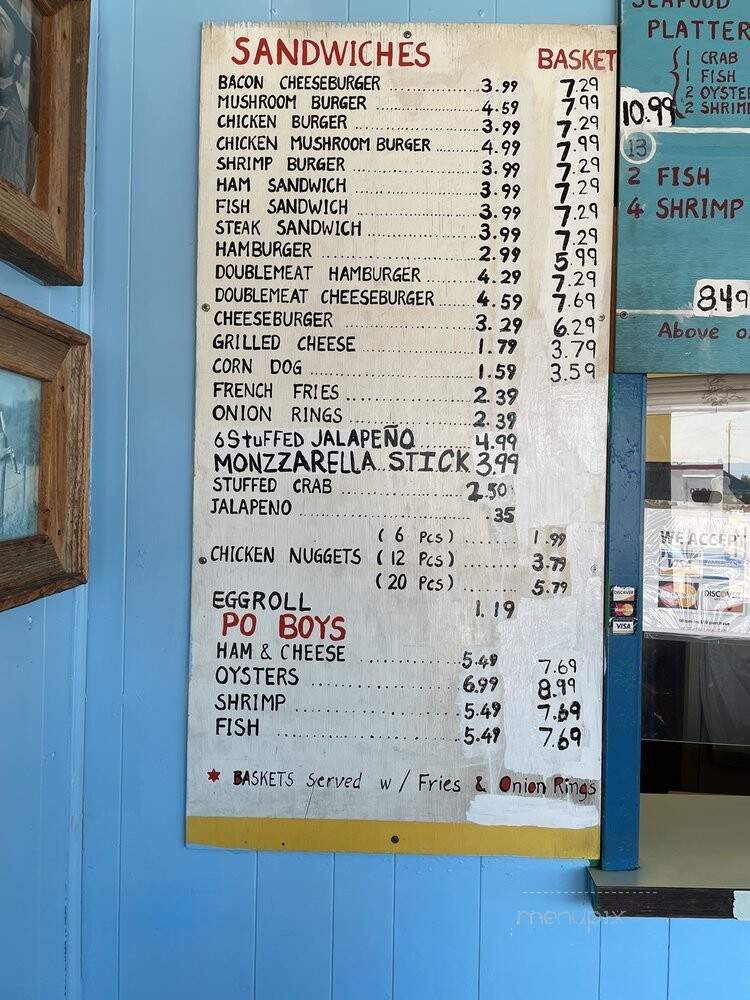 SANDWICHES BASKET
BACON CHEESEBURGER 3.99 7.29
MUSHROOM BURGER 4.59 7.99
CHICKEN BURGER 3.99 7.29
CHICKEN MUSHROOM BURGER 4.99 7.99
SHRIMP BURGER 3.99 7.29
HAM SANDWICH 3.99 7.29
FISH SANDWICH 3.99 7.29
STEAK SANDWICH 3.99 7.29
HAMBURGER 2.99 5.99
DOUBLEMEAT HAMBURGER 4.29 7.29
DOUBLEMEAT CHEESEBURGER 4.59 7.69
CHEESEBURGER 3.29 6.29
GRILLED CHEESE 1.79 3.79
CORN DOG 1.59 3.59
FRENCH FRIES 2.39
ONION RINGS 2.39
6 STUFFED JALAPEÑO 4.99
MONZZARELLA STICK 3.99
STUFFED CRAB 2.50
JALAPENO .35
(6 Pcs) 1.99
CHICKEN NUGGETS (12 Pcs) 3.79
(20 Pcs) 5.79
EGGROLL 1.19
PO BOYS
HAM & CHEESE 5.49 7.69
OYSTERS 6.99 8.99
SHRIMP 5.49 7.69
FISH 5.49 7.69
* BASKETS served w/ Fries & Onion Rings
SEAFOOD
PLATTER
1 CRAB
1 FISH
2 OYSTE
10.99 2 SHRIM
13
2 FISH
4 SHRIMP
8.49
Above
WE ACCEPT
VISA
MasterCard DISCOVER
DISCOVER
MasterCard
VISA
menupix